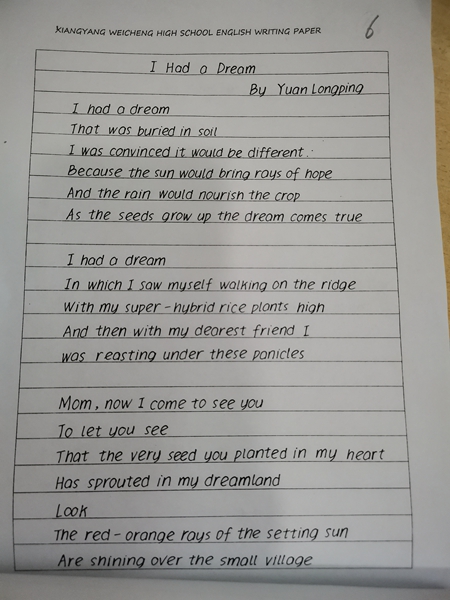 XIANGYANG WEICHENG HIGH SCHOOL ENGLISH WRITING PAPER
6
I Had a Dream
By Yuan Longping
I had a dream
That was buried in soil
I was convinced it would be different.
Because the sun would bring rays of hope
And the rain would nourish the crop
As the seeds grow up the dream comes true
I had a dream
In which I saw myself walking on the ridge
With my super-hybrid rice plants high
And then with my dearest friend I
was reasting under these panicles
Mom, now I come to see you
To let you see
That the very seed you planted in my heart
Has sprouted in my dreamland
Look
The red-orange rays of the setting sun
Are shining over the small village